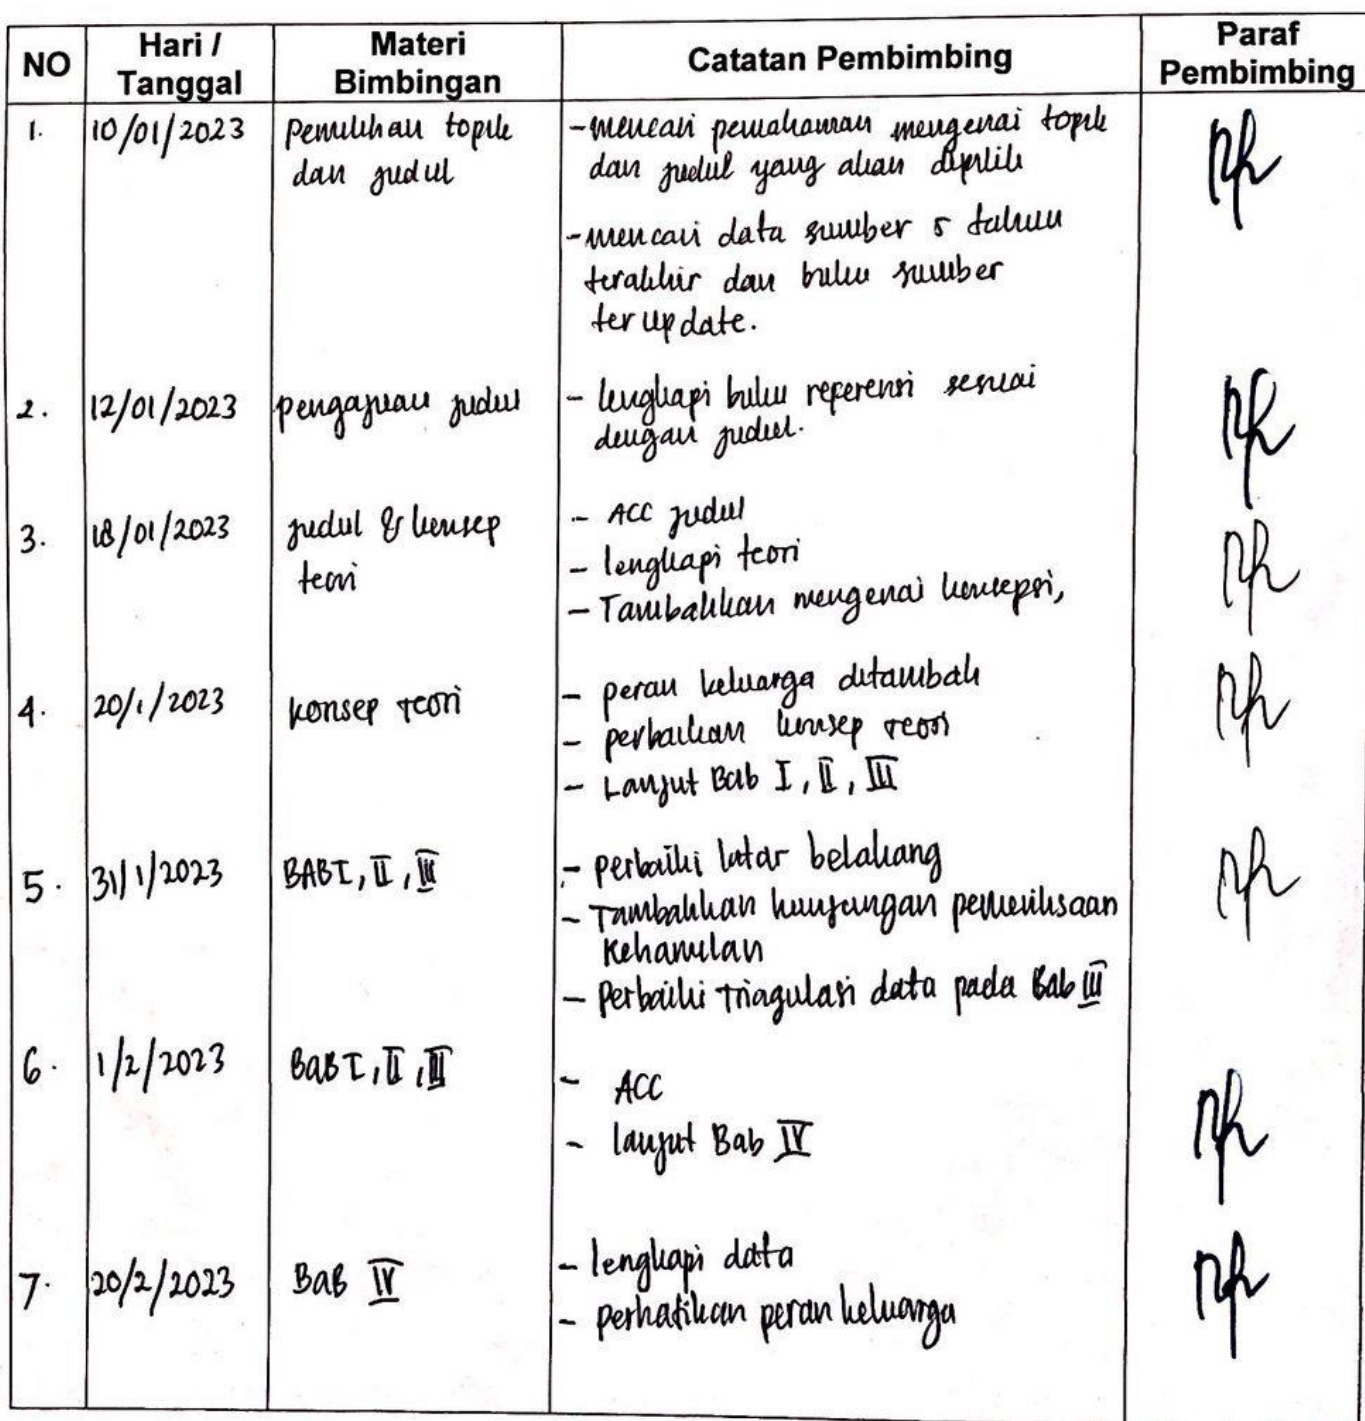 NO Hari / Tanggal Materi Bimbingan Catatan Pembimbing Paraf Pembimbing
1. 10/01/2023 Pemilihan topik - mencari pemahaman mengenai topik
dan judul dan judul yang akan dipilih
- mencari data sumber 5 tahun
terakhir dan buku sumber
ter update.
2. 12/01/2023 pengajuan judul - lengkapi buku referensi sesuai
dengan judul.
3. 18/01/2023 judul & konsep - ACC judul
teori - lengkapi teori
- Tambahkan mengenai konsepsi,
4. 20/1/2023 konsep teori - peran keluarga ditambah
- perbaikan konsep teori
- Lanjut Bab I, II, III
5. 31/1/2023 BAB I, II, III - perbaiki latar belakang
- Tambahkan kunjungan pemeriksaan
kehamilan
- Perbaiki Triagulasi data pada Bab III
6. 1/2/2023 BAB I, II, III - ACC
- lanjut Bab IV
7. 20/2/2023 BAB IV - lengkapi data
- perhatikan peran keluarga